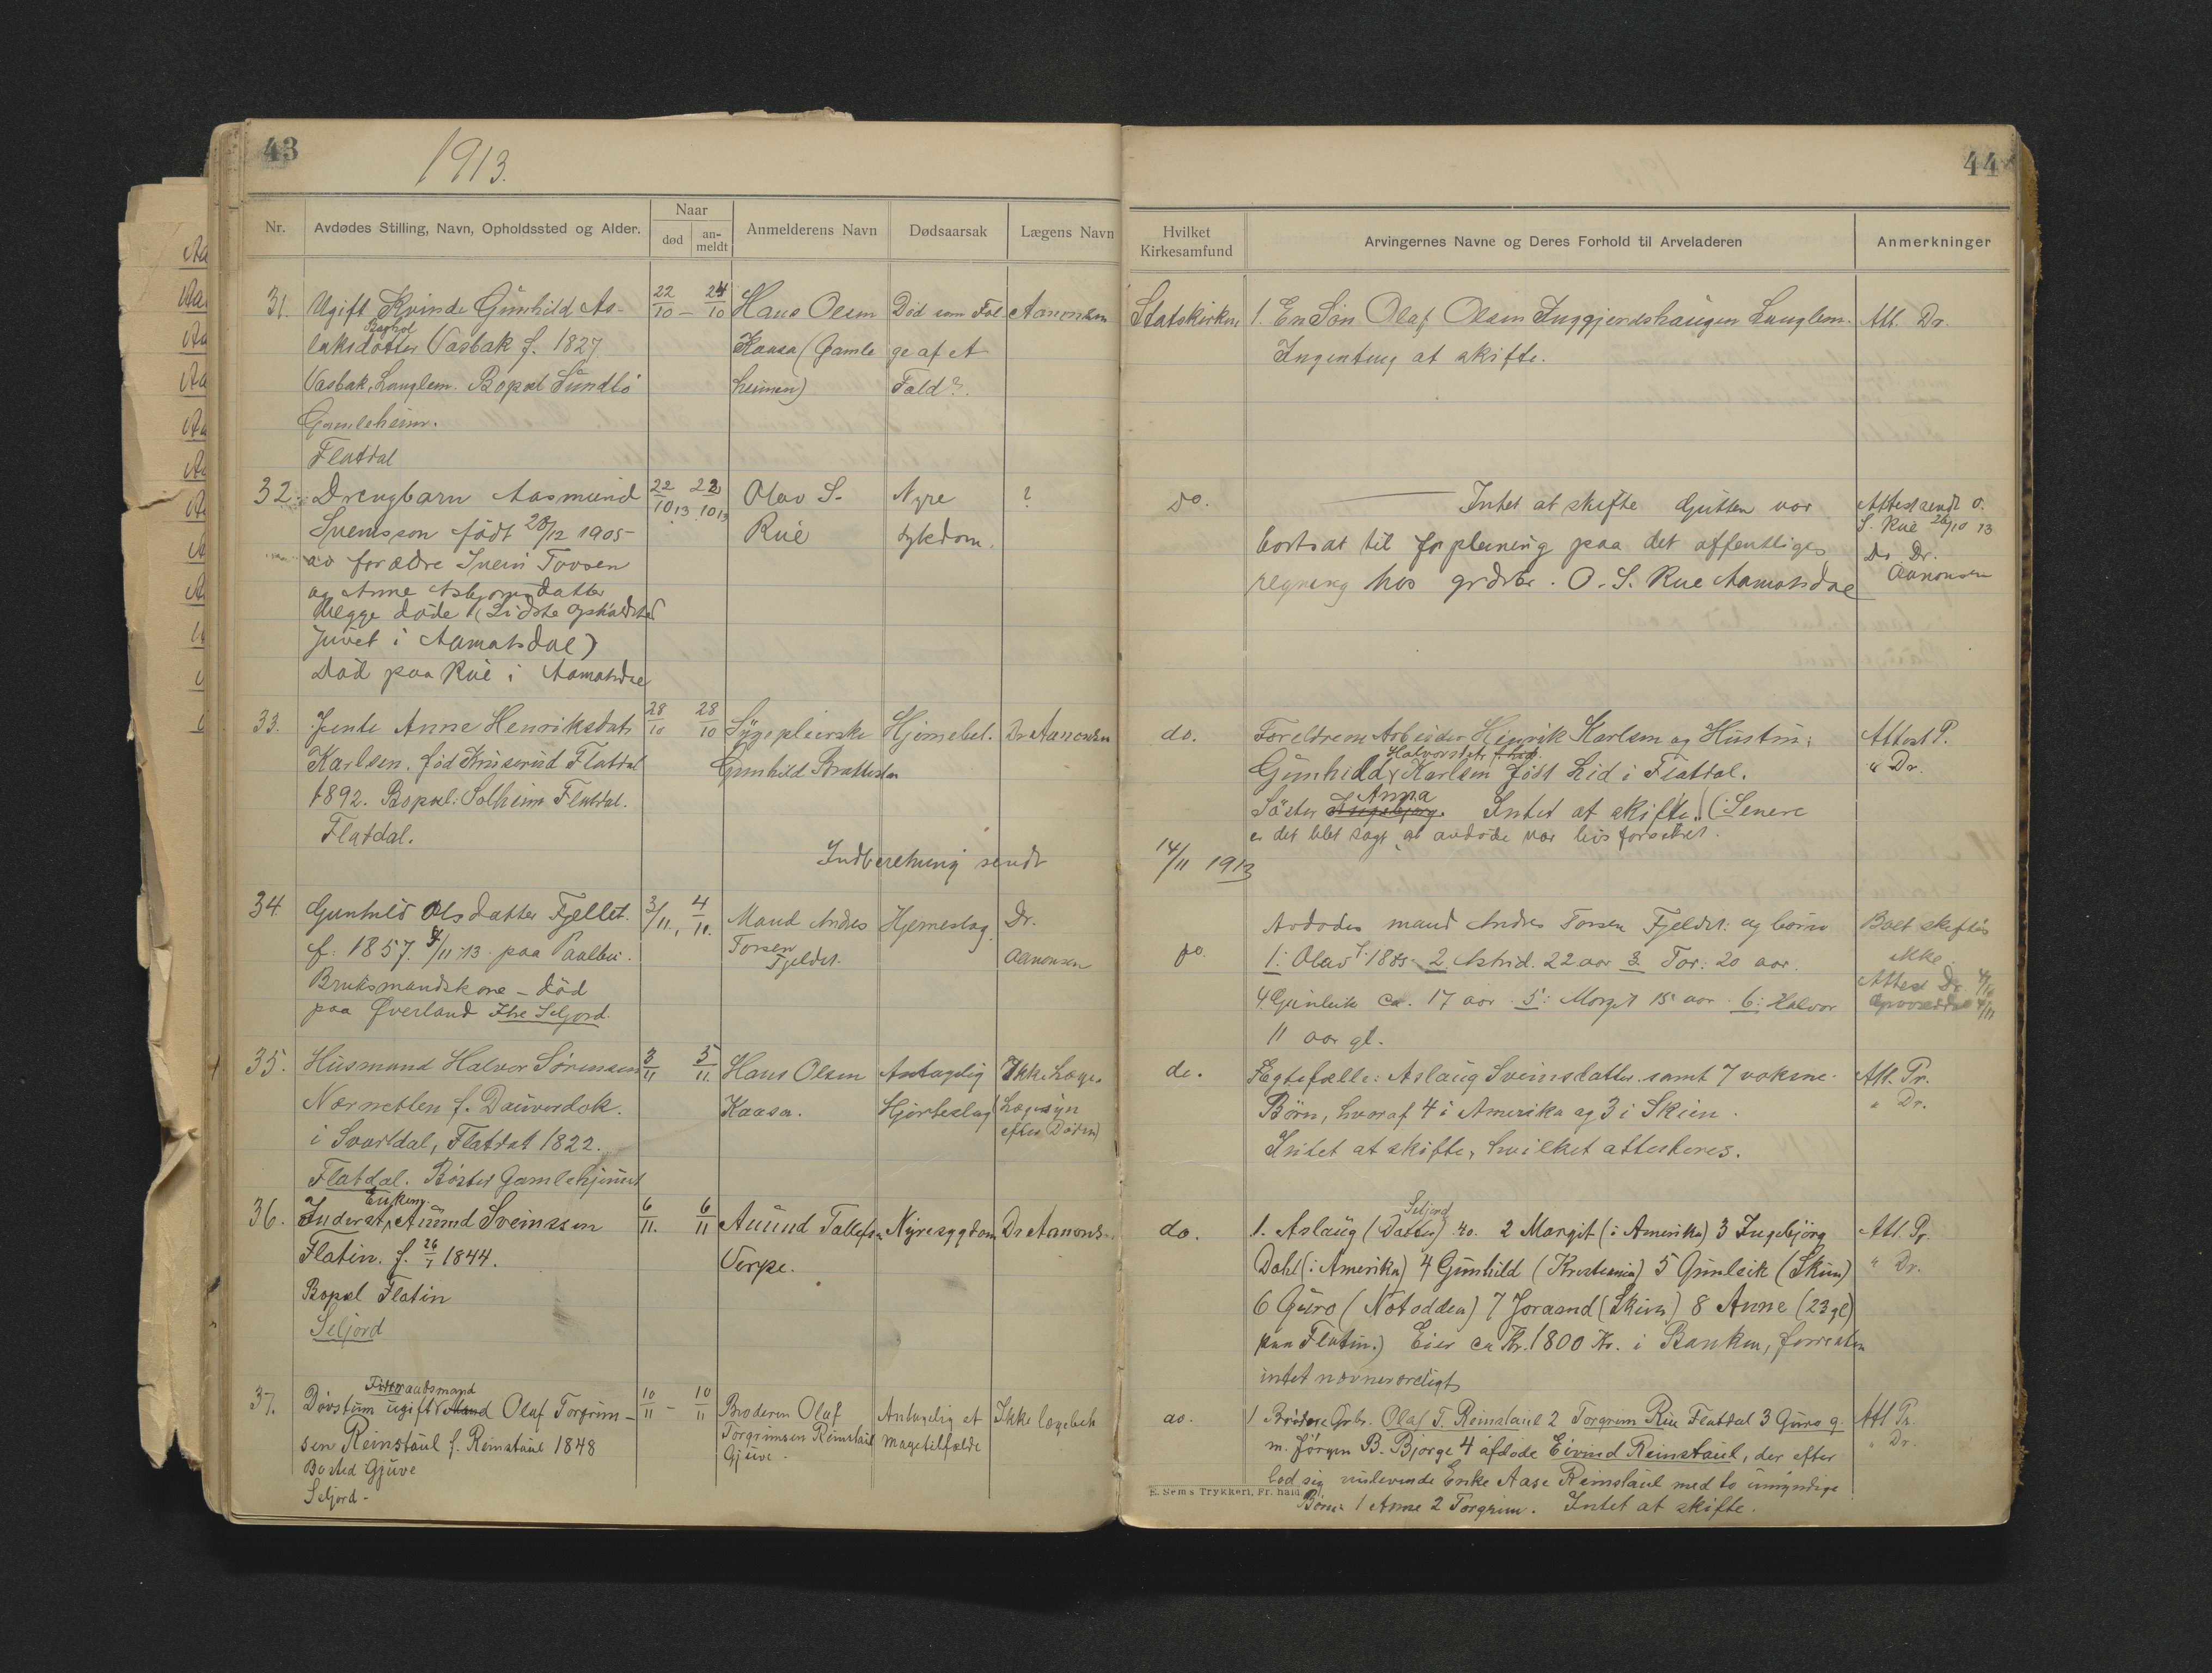 43
1913.
Nr.
Avdødes Stilling, Navn, Opholdssted og Alder.
Naar
død
an-
meldt
Anmelderens Navn
Dødsaarsak
Lægens Navn
31.
Ugift Kvinde Gunhild As-
laksdatter Vasbak f. 1827
Vasbak, Langlem. Bopæl Sundbö
Gamleheim.
Flatdal
22/10 - 24/10
Hans Olsen
Kaasa (Gamle
heimen)
Död som Föl
ge af et
Fald?
Aanonsen
32.
Drengbarn Aasmund
Sveinsson født 28/12 1905
av forældre Svein Tovsen
og Anne Asbjornsdatter
Begge døde (Sidste opholdsted
Juvet i Aamotsdal)
Død paa Rue i Aamotsdal
22/10 13 22/10 13
Olav S.
Rue
Nyre
sykdom.
?
33.
Jente Anne Henriksdatr
Karlsen. föd Flatdal
1892. Bopæl: Solheim Flatdal.
Flatdal.
28/10 28/10
Sygepleierske
Gunhild Brattestad
Hjernebet.
Dr Aanonsen
Indberetning sendt
34
Gunhild Olsdatter Fjellet.
f. 1857. 3/11 13 paa
Bruksmandskone - død
paa Øverland Seljord.
3/11, 4/11.
Mand Andres
Torsen
Fjeldet.
Hjerneslag.
Dr.
Aanonsen
35.
Husmand Halvor Sörensen
Nornetlen f. Dauverdok.
i Svartdal, Flatdal 1822.
Flatdal. Bösted Gamlehjemmet
3/11 5/11.
Hans Olsen
Kaasa.
Antagelig
Hjerteslag
Ikke Læge.
(Lægesyn
efter Döden)
36.
Enkem.
Inderst, Aamund Sveinssen
Flatin. f. 26/7 1844.
Bopæl Flatin
Seljord
6/11. 6/11
Aamund Tallefs.
Verpe.
Nyresygdom
Dr Aanons.
37.
Forraadsmand
Dövstum ugift Mand Olaf Torgrim-
sen Reinstaul f. Reinstaul 1848
Bosted Gjuve
Seljord -
10/11 - 10/11
Broderen Olaf
Torgrimsen Reinstaul
Gjuve -
Antagelig et
mavetilfælde
Ikke lægebeh
44
Hvilket
Kirkesamfund
Arvingernes Navne og Deres Forhold til Arveladeren
Anmerkninger
Statskirken
1. En Sön Olaf Olsen Inggjerdshaugen Langlem.
Ingenting at skifte.
Att. Dr.
do.
Intet at skifte Gutten var
bortsat til forpleining paa det offentliges
regning hos grdbr. O. S. Rue Aamotsdal
Attest sendt O.
S. Rue 26/10 13
Do Dr.
Aanonsen
do.
Foreldrene Arbeider Henrik Karlsen og Hustru:
Halvorsdtr
Gunhild Karlsen födt Lid i Flatdal.
Anna
Söster Ingebjørg. Intet at skifte. (Senere
er det blet sagt at avdøde var livsforsikret.
Attest P.
" Dr.
14/11 1913
Avdødes mand Andres Torsen Fjeldet: og börn
do.
1: Olav f. 1885 2. Astrid. 22 aar 3. Tor: 20 aar.
4. Gunleik ca. 17 aar. 5: Margit 15 aar. 6: Halvor
11 aar gl.
Boet skiftes
ikke.
Attest Dr. 4/11
4/11
do.
Egtefælle: Aslaug Sveinsdatter samt 7 voksne
Börn, hvoraf 4 i Amerika og 3 i Skien.
Intet at skifte, hvilket attesteres.
Att. Pr.
" Dr.
do.
Seljord
1. Aslaug (Datter) 40. 2 Margit (i Amerika) 3 Ingebjörg
Dahl (i Amerika) 4 Gunhild (Kristiania) 5 Gunleik (Skien)
6 Guro (Notodden) 7 Joraand (Skien) 8 Anne (23 gl)
paa Flatin.) Eier ca Kr. 1800 Kr. i Banken, forresten
intet nævneværdigt
Att. Pr.
" Dr.
do.
1 Brödere Grbr. Olaf T. Reinstaul 2 Torgrim Rue Flatdal 3 Guro g.
m. Jörgen B. Bjorge 4 afdöde Eivind Reinstaul, der efter
lod sig nulevende Enke Aase Reinstaul med to umyndige
Börn: 1 Anne 2 Torgrim. Intet at skifte.
Att Pr.
" Dr.
E. Sems Trykkeri, Fr. hald